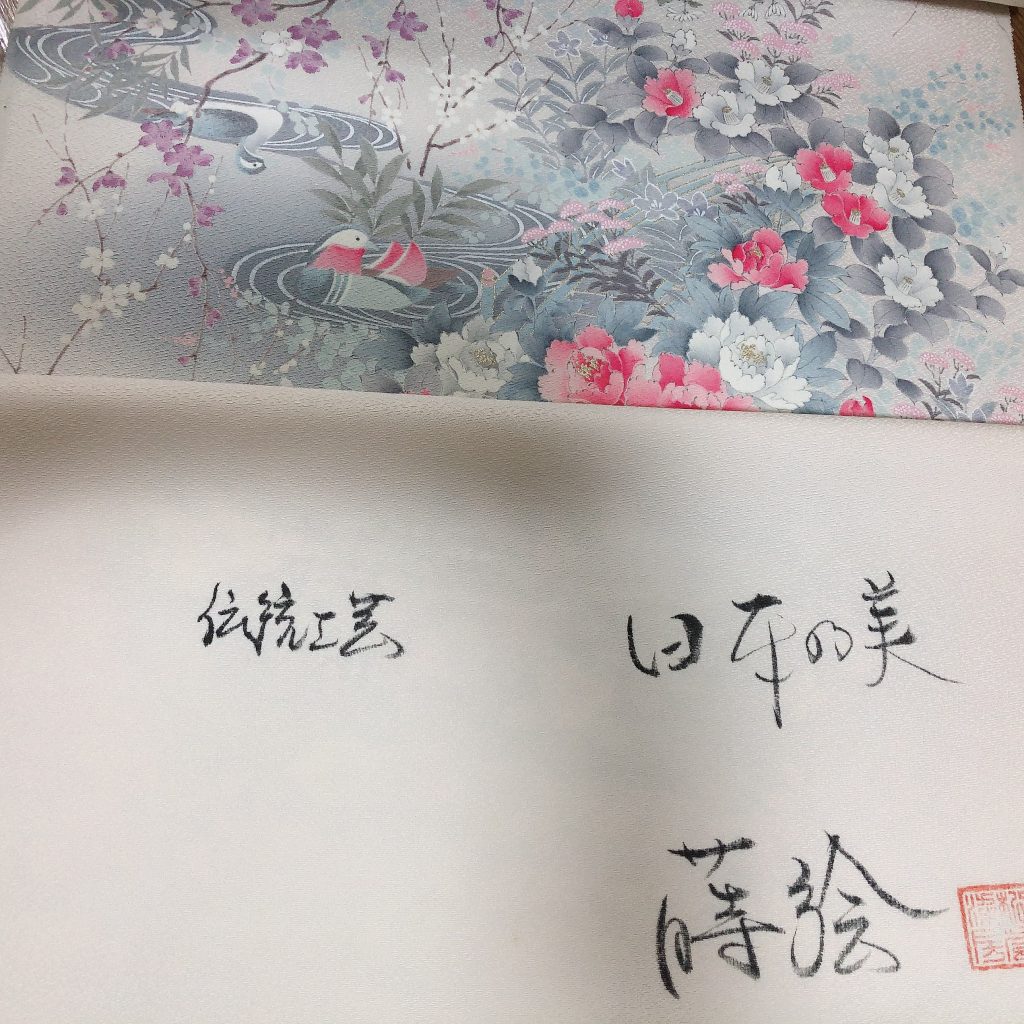 伝統工芸
日本の美
蒔絵